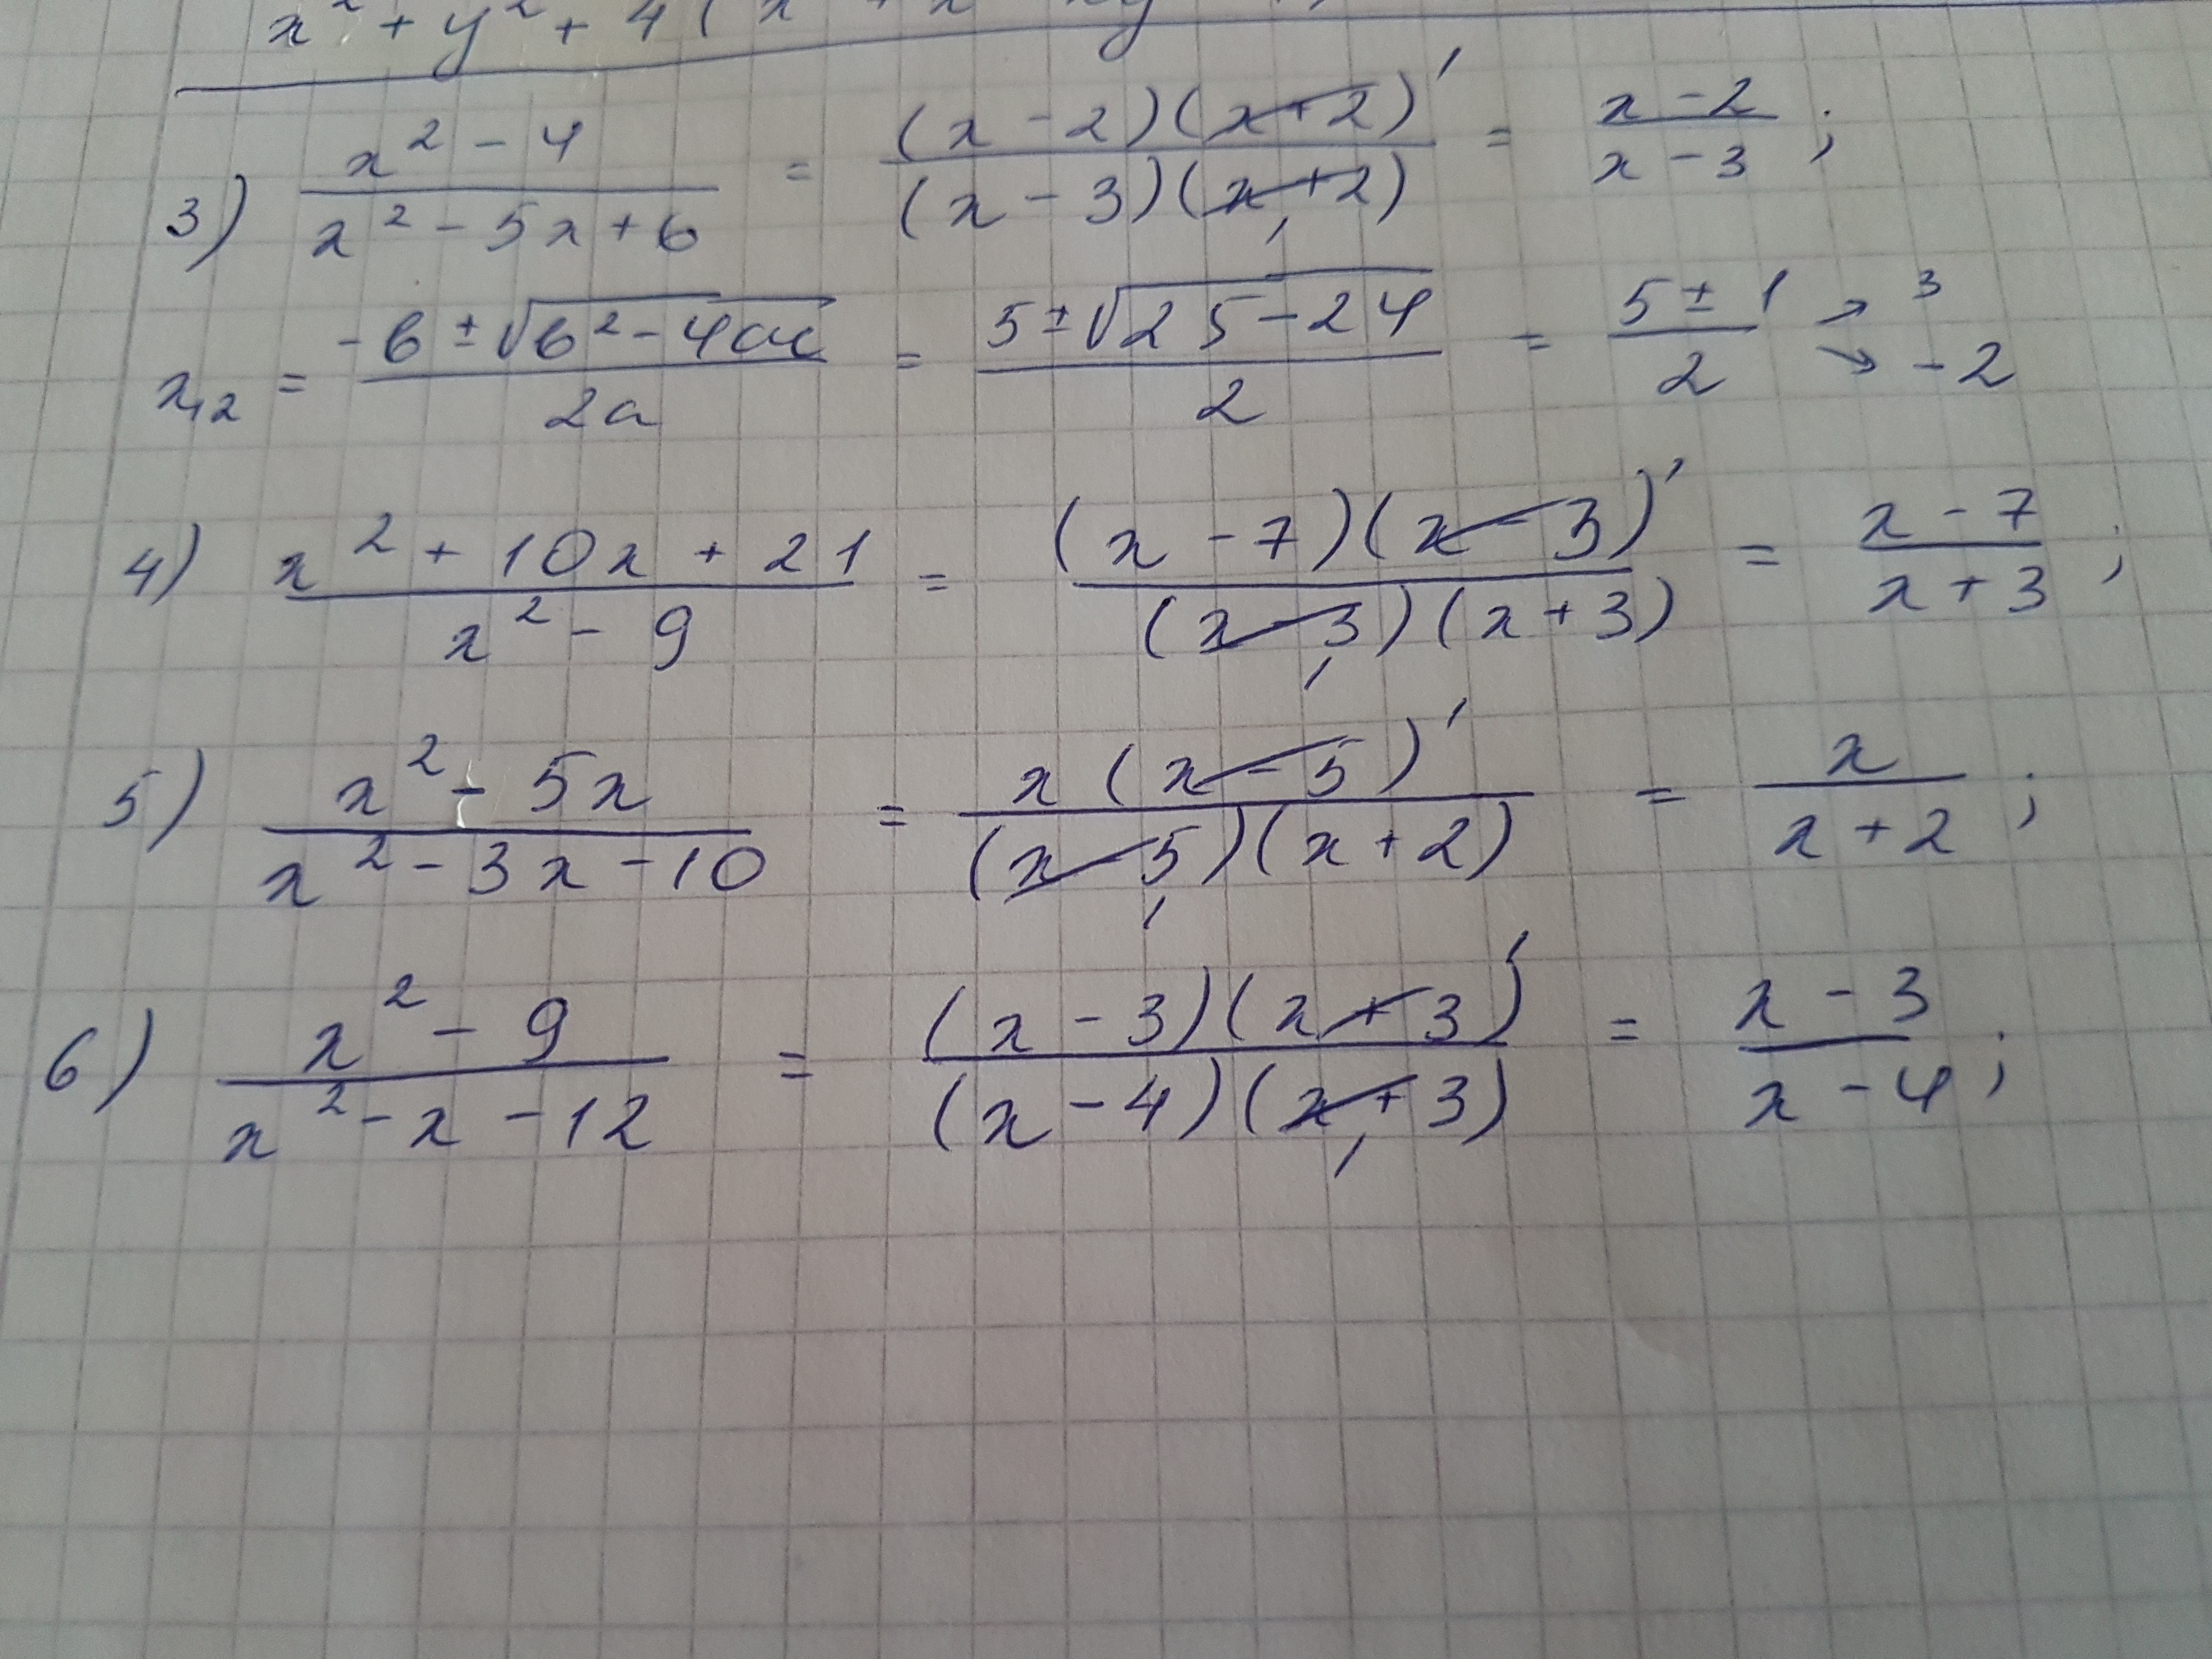 x² + y² + 4
3) (x² - 4)/(x² - 5x + 6) = ((x - 2)(x + 2))/((x - 3)(x + 2)) = (x - 2)/(x - 3);
x₁₂ = (-b ± √(b² - 4ac))/(2a) = (5 ± √(25 - 24))/2 = (5 ± 1)/2 → 3 → -2
4) (x² + 10x + 21)/(x² - 9) = ((x - 7)(x - 3))/((x - 3)(x + 3)) = (x - 7)/(x + 3);
5) (x² - 5x)/(x² - 3x - 10) = (x(x - 5))/((x - 5)(x + 2)) = x/(x + 2);
6) (x² - 9)/(x² - x - 12) = ((x - 3)(x + 3))/((x - 4)(x + 3)) = (x - 3)/(x - 4);